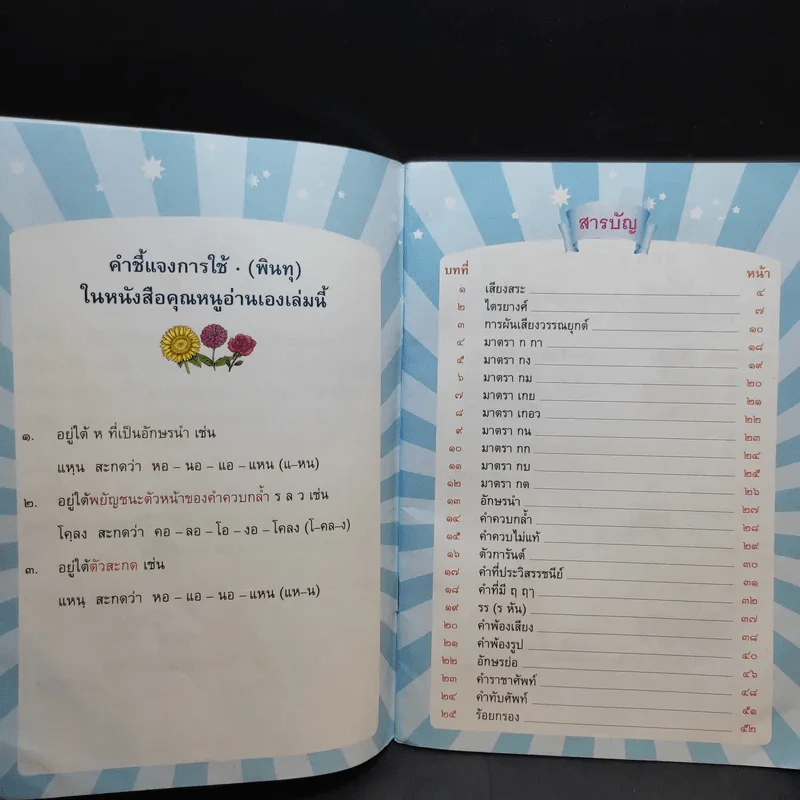 คำชี้แจงการใช้ · (พินทุ)
ในหนังสือคุณหนูอ่านเองเล่มนี้
๑. อยู่ใต้ ห ที่เป็นอักษรนำ เช่น
แหฺน สะกดว่า หอ – นอ – แอ – แหน (แ–หน)
๒. อยู่ใต้พยัญชนะตัวหน้าของคำควบกล้ำ ร ล ว เช่น
โคฺลง สะกดว่า คอ – ลอ – โอ – งอ – โคลง (โ–คล–ง)
๓. อยู่ใต้ตัวสะกด เช่น
แหนฺ สะกดว่า หอ – แอ – นอ – แหน (แห–น)
สารบัญ
บทที่ หน้า
๑ เสียงสระ ๔
๒ ไตรยางศ์ ๗
๓ การผันเสียงวรรณยุกต์ ๑๐
๔ มาตรา ก กา ๑๘
๕ มาตรา กง ๑๙
๖ มาตรา กม ๒๐
๗ มาตรา เกย ๒๑
๘ มาตรา เกอว ๒๒
๙ มาตรา กน ๒๓
๑๐ มาตรา กก ๒๔
๑๑ มาตรา กบ ๒๕
๑๒ มาตรา กด ๒๖
๑๓ อักษรนำ ๒๗
๑๔ คำควบกล้ำ ๒๘
๑๕ คำควบไม่แท้ ๒๙
๑๖ ตัวการันต์ ๓๐
๑๗ คำที่ประวิสรรชนีย์ ๓๑
๑๘ คำที่มี ฤ ฤๅ ๓๒
๑๙ รร (ร หัน) ๓๗
๒๐ คำพ้องเสียง ๓๘
๒๑ คำพ้องรูป ๔๐
๒๒ อักษรย่อ ๔๖
๒๓ คำราชาศัพท์ ๔๘
๒๔ คำทับศัพท์ ๕๑
๒๕ ร้อยกรอง ๕๒